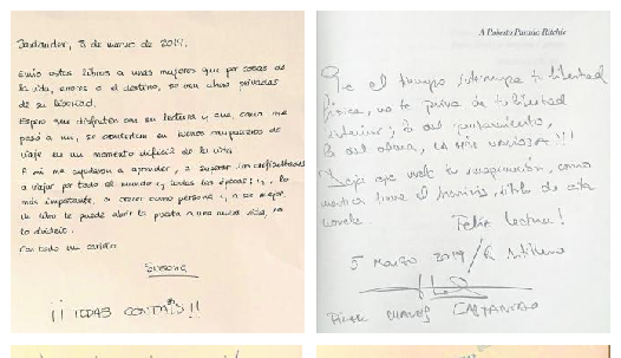 Santander, 3 de marzo de 2019.
Envío estos libros a unas mujeres que por cosas de
la vida, errores o el destino, se ven ahora privadas
de su libertad.
Espero que disfruten con su lectura y que, como me
pasó a mí, se conviertan en buenos compañeros de
viaje en un momento difícil de la vida.
A mí me ayudaron a aprender, a superar las dificultades
a viajar por todo el mundo y todas las épocas; y, lo
más importante, a crecer como persona y, a ser mejor.
Un libro te puede abrir la puerta a una nueva vida, no
lo olvidéis.
Con todo mi cariño
Susana
¡¡ TODAS CONTÁIS !!
A Roberto Pascua Ritchie
Que el tiempo interrumpa tu libertad
física, no te priva de tu libertad
interior; la del pensamiento,
la del alma, la más valiosa!!!
Deja que vuele tu imaginación, como
título de esta
novela.
Feliz lectura!
5 Marzo 2019
CASTANEDO